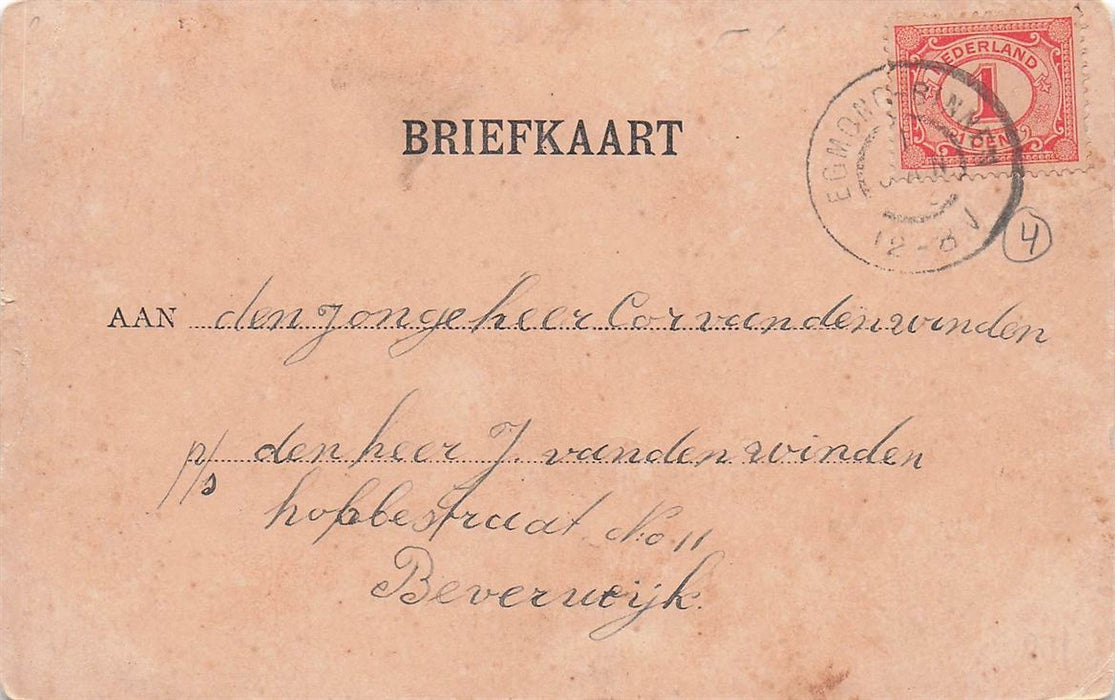 BRIEFKAART
NEDERLAND
1
1 CENT
EGMOND-BINNEN
12-8V
4
AAN den jongeheer Cor vanden winden
p/s den heer J. vanden winden
hobbestraat No 11
Beverwijk.